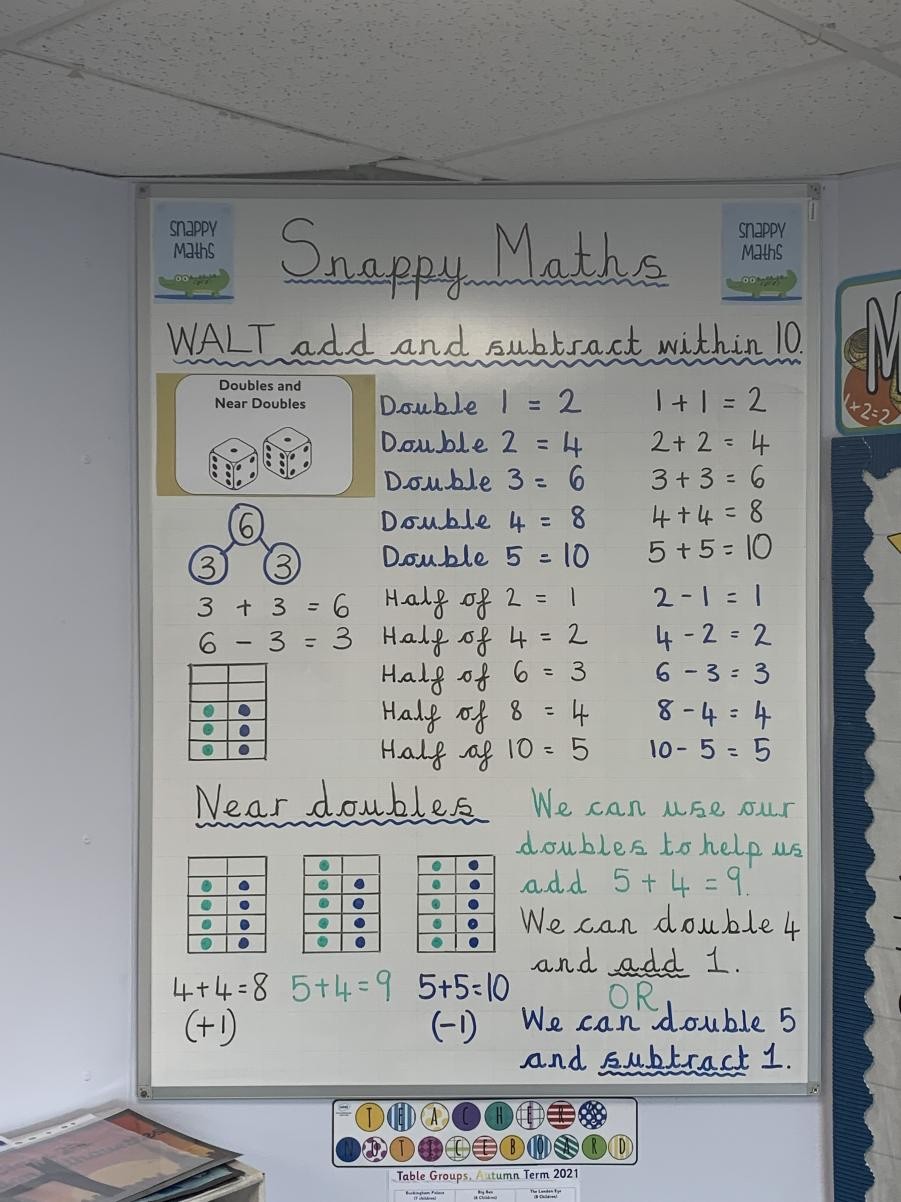 snappy
Maths
Snappy Maths
snappy
Maths
WALT add and subtract within 10.
Doubles and
Near Doubles
6
3 3
3 + 3 = 6
6 - 3 = 3
Double 1 = 2
Double 2 = 4
Double 3 = 6
Double 4 = 8
Double 5 = 10
1 + 1 = 2
2 + 2 = 4
3 + 3 = 6
4 + 4 = 8
5 + 5 = 10
Half of 2 = 1
Half of 4 = 2
Half of 6 = 3
Half of 8 = 4
Half of 10 = 5
2 - 1 = 1
4 - 2 = 2
6 - 3 = 3
8 - 4 = 4
10 - 5 = 5
Near doubles
4+4=8
(+1)
5+4=9
5+5=10
(-1)
We can use our
doubles to help us
add 5 + 4 = 9.
We can double 4
and add 1.
OR
We can double 5
and subtract 1.
M
1+2=2
TEACHERS
NOTICEBOARD
Table Groups, Autumn Term 2021
Buckingham Palace
(7 children)
Big Ben
(6 Children)
The London Eye
(8 Children)